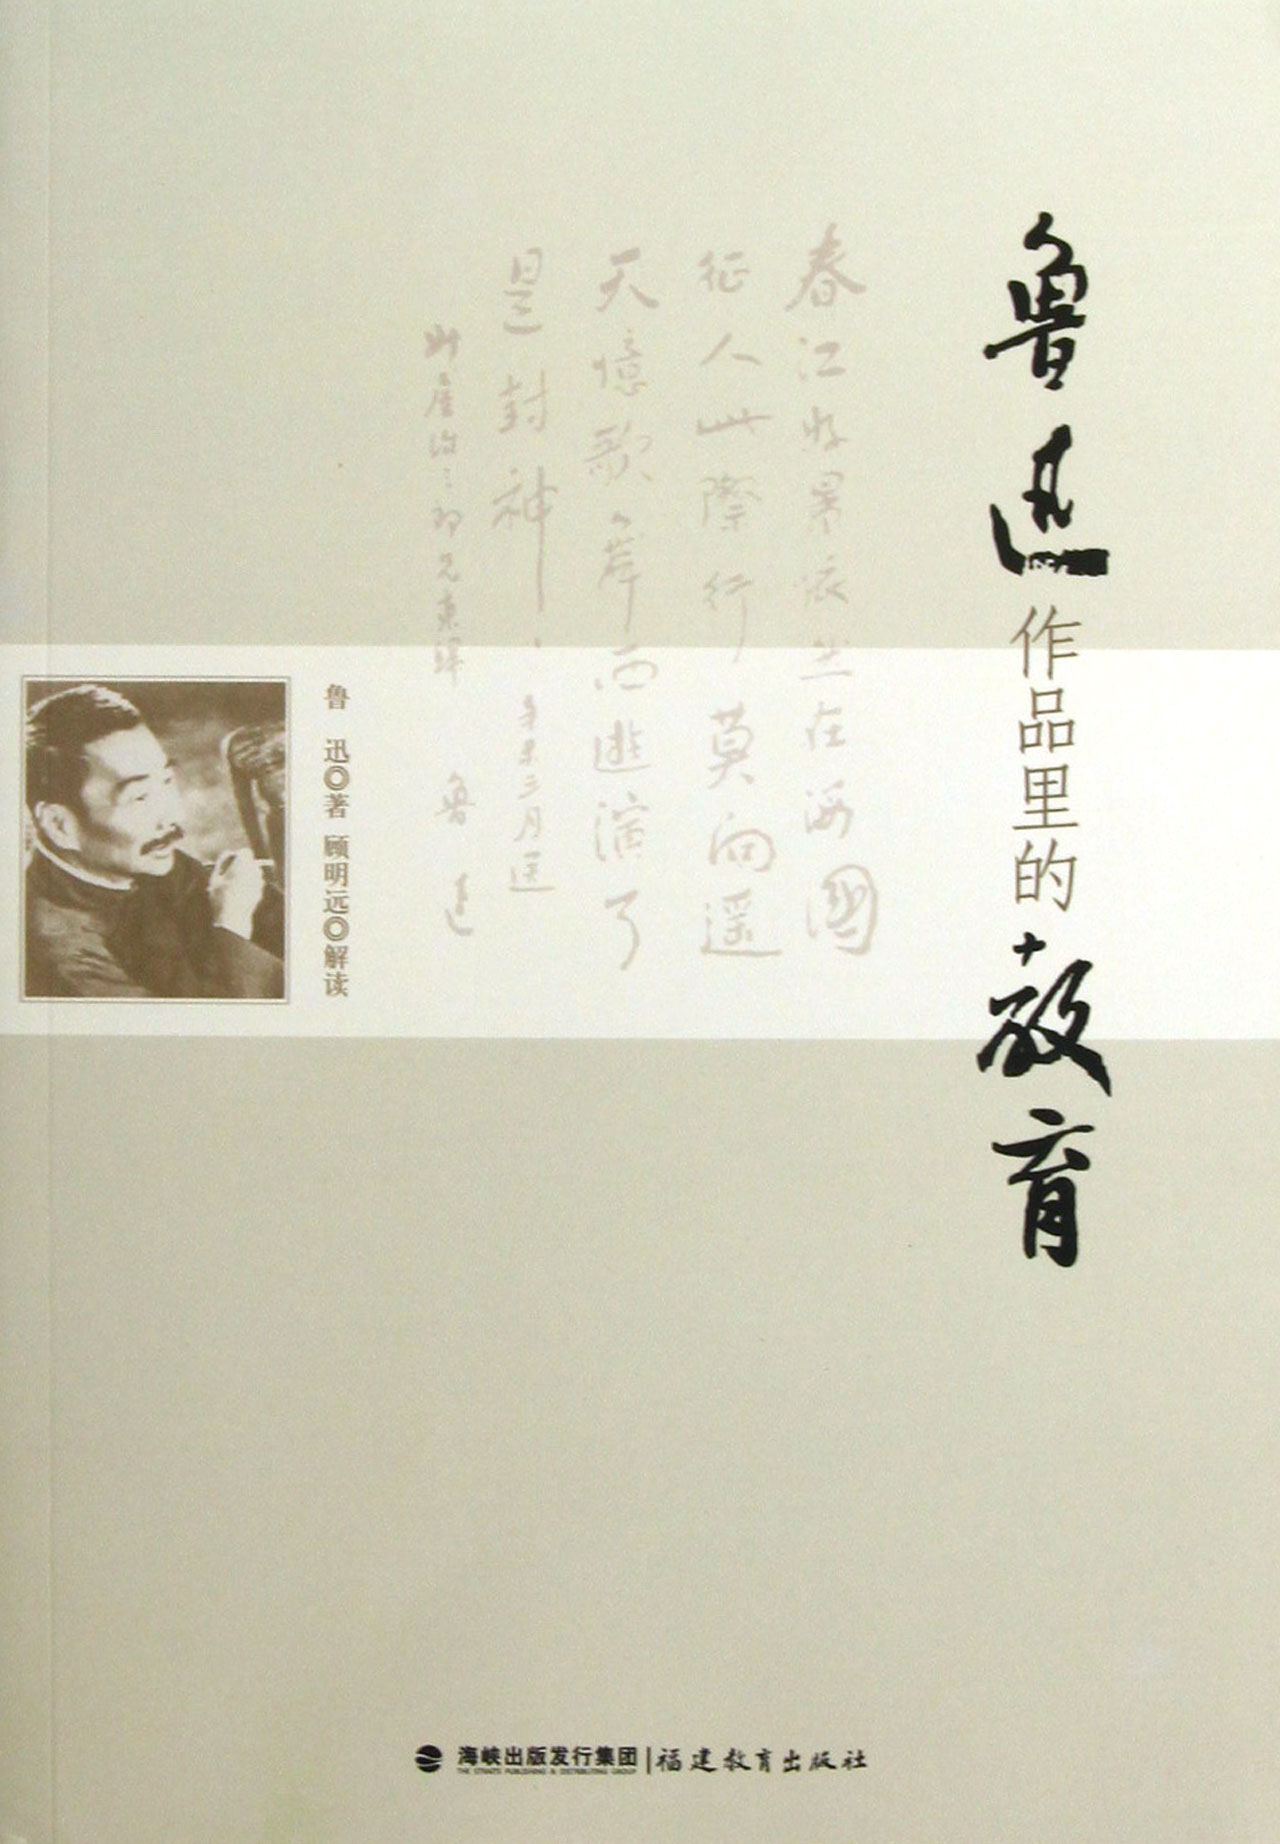 鲁迅作品里的教育
春江好景依然在海國
征人此際行莫向遥
天憶歌舞西遊演了
是封神 辛未三月送
升屋治三郎兄東歸 魯迅
鲁 迅◎著 顾明远◎解读
海峡出版发行集团 | 福建教育出版社
THE STRAITS PUBLISHING & DISTRIBUTING GROUP